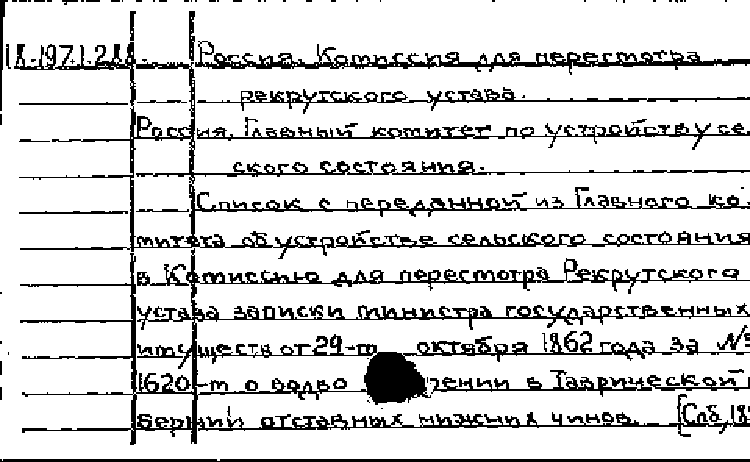 18.197.1.288. Россия. Комиссия для пересмотра
рекрутского устава.
Россия. Главный комитет по устройству се
ского состояния.
Список с переданной из Главного ко
митета об устройстве сельского состояния
в Комиссию для пересмотра Рекрутского
устава записки министра государственных
имуществ от 29-го октября 1862 года за №
1620-м о водво рении в Таврической
бернии отставных нижних чинов. [Спб, 18